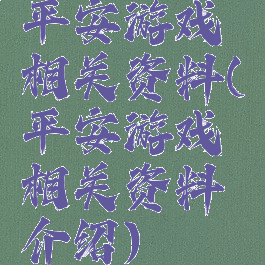 平安游戏
相关资料(
平安游戏
相关资料
介绍)